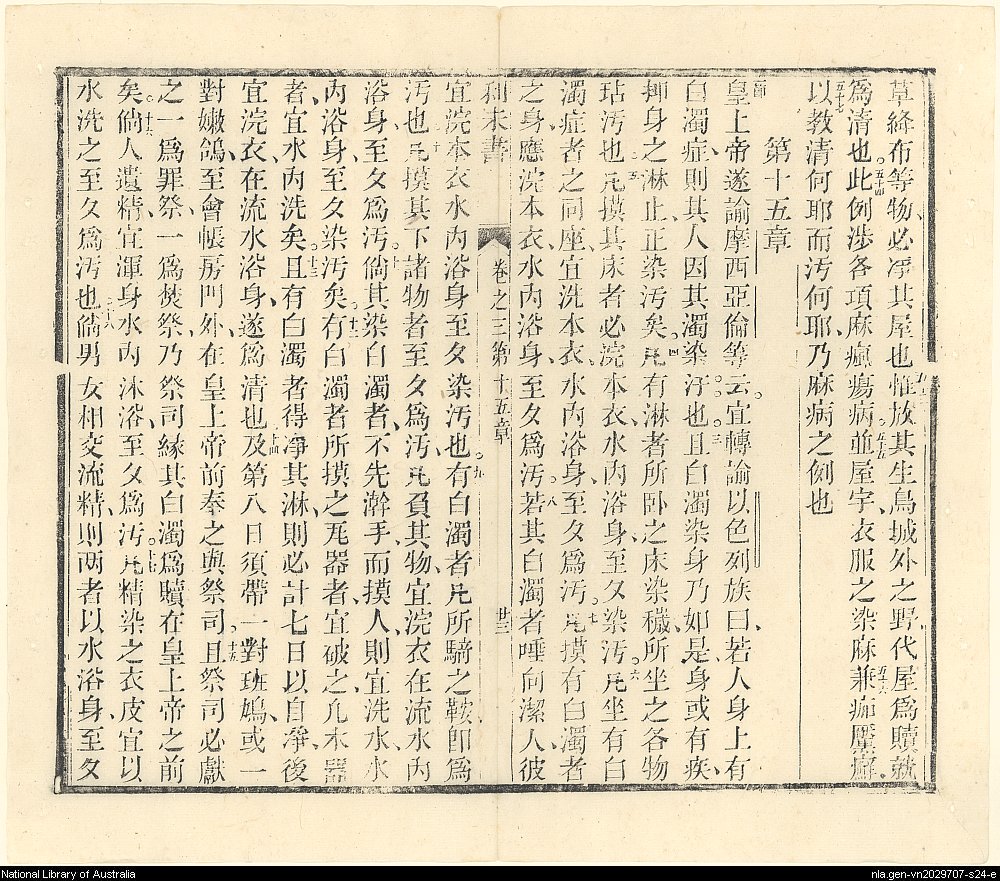 草絳布等物必凈其屋也五十三惟放其生鳥城外之野代屋爲贖就
爲清也五十四此例渉各項麻瘋瘍病五十五並屋宇衣服之染麻五十六兼痂壓癬
五十七以教清何耶而汚何耶乃麻病之例也
第十五章
一節皇上帝遂諭摩西亞倫等云二宜轉諭以色列族曰若人身上有
白濁症則其人因其濁染汙也三且白濁染身乃如是身或有疾
抑身之淋止正染汚矣四凡有淋者所卧之床染穢所坐之各物
玷汚也五凡摸其床者必浣本衣水內浴身至夂染汚六凡坐有白
濁症者之同座宜洗本衣水內浴身至夂爲汚七凡摸有白濁者
之身應浣本衣水內浴身至夂爲汚八若其白濁者唾向潔人彼
利未書 卷之三第十五章 廿三
宜浣本衣水內浴身至夂染汚也九有白濁者凡所騎之鞍卽爲
汚也十凡摸其下諸物者至夂爲汚凡負其物宜浣衣在流水內
浴身至夂爲汚十一倘其染白濁者不先澣手而摸人則宜洗水水
內浴身至夂染汚矣十二有白濁者所摸之瓦器者宜破之凢木器
者宜水內洗矣十三且有白濁者得凈其淋則必計七日以自凈後
宜浣衣在流水浴身遂爲清也十四及第八日須帶一對班鳩或一
對嫩鴿至會帳房門外在皇上帝前奉之與祭司十五且祭司必獻
之一爲罪祭一爲焚祭乃祭司緣其白濁爲贖在皇上帝之前
矣十六倘人遺精宜渾身水內沐浴至夂爲汚十七凡精染之衣皮宜以
水洗之至夂爲汚也十八倘男女相交流精則兩者以水浴身至夂
National Library of Australia
nla.gen-vn2029707-s24-e